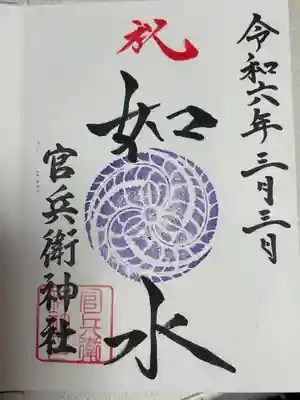 令和六年三月三日
祝
如水
官兵衛神社
官兵衛
神社